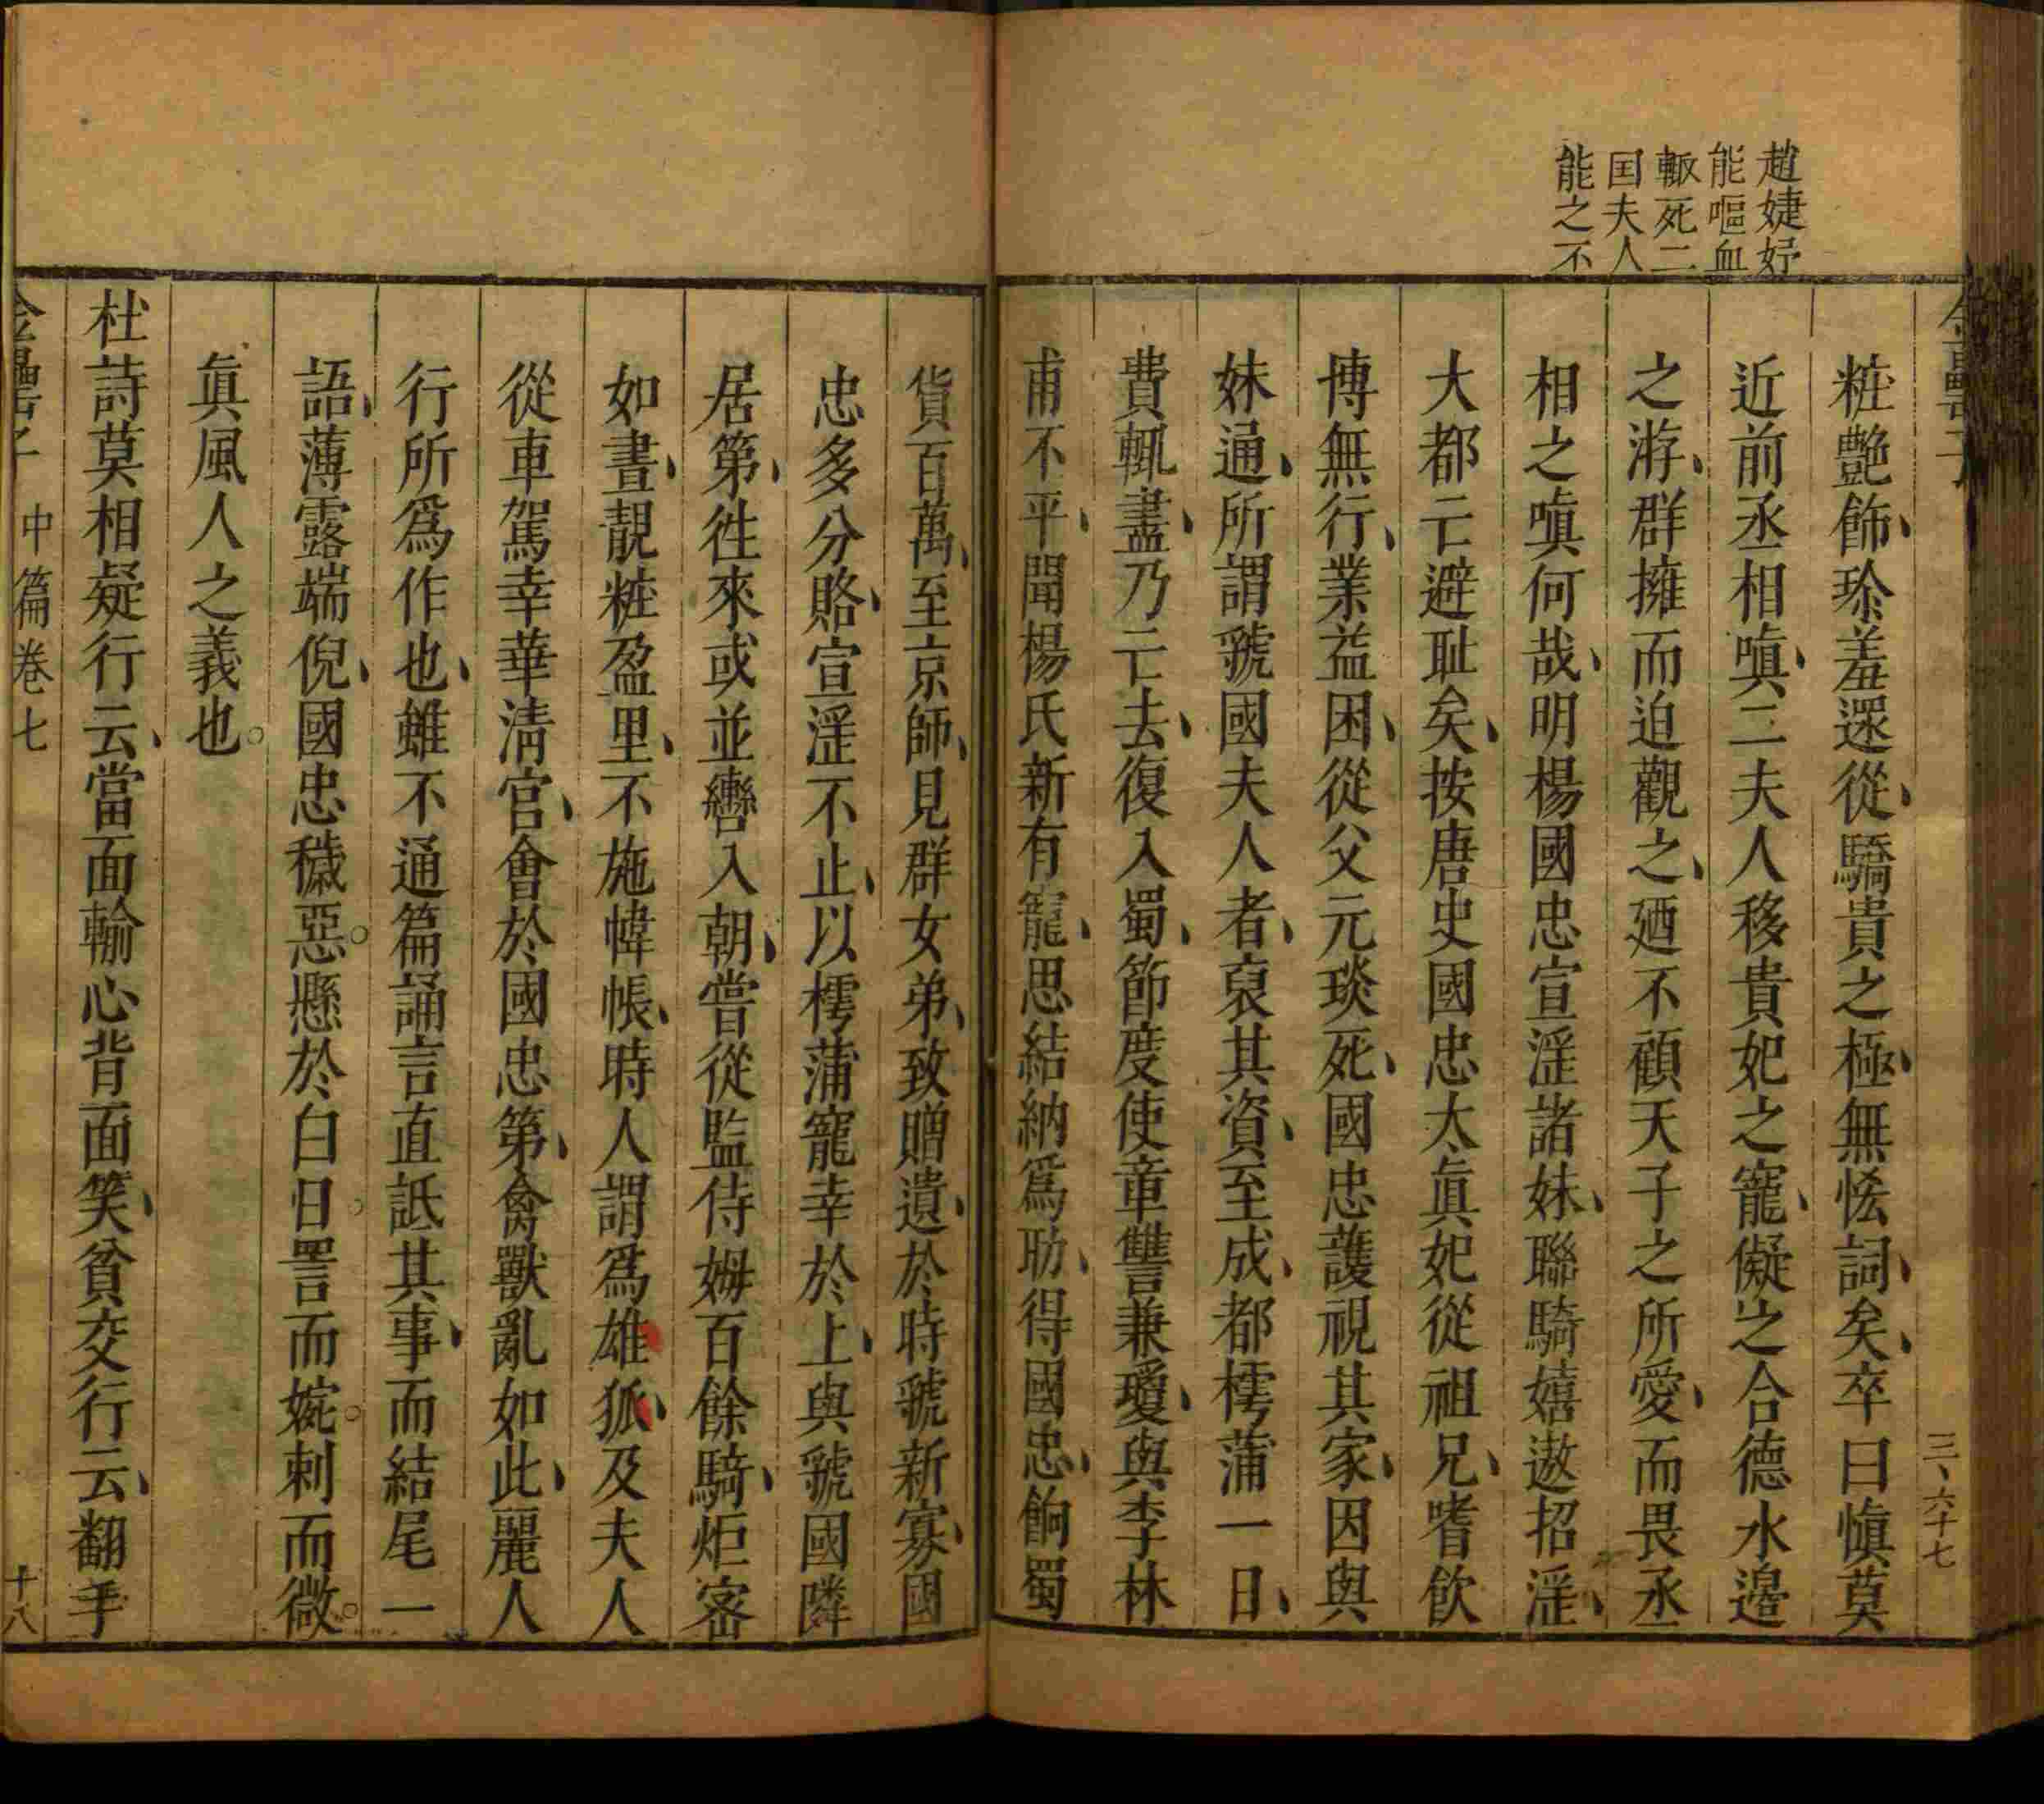 趙婕妤
能嘔血
輙死二
囯夫人
能之不
三、六十七
粧艷飾、珎羞還從、驕貴之極、無恡詞、矣、卒曰愼莫
近前丞相嗔、二夫人移貴妃之寵、儗之合德水邉
之游、群擁而迫觀之、廼不顧天子之所愛、而畏丞
相之嗔何哉、明楊國忠宣滛諸妹、聯騎嬉遨招滛、
大都亡避耻矣、按唐史國忠太眞妃從祖兄、嗜飲
博無行、業益困、從父元琰死、國忠護視其家、因與
妹通、所謂虢國夫人者、裒其資、至成、都樗蒲一日、
費輒盡、乃亡去、復入蜀、節度使章讐兼瓊、與李林
甫不平、聞楊氏新有寵、思結納爲助、得國忠、餉蜀
貨百萬、至京師、見群女弟、致贈遺、於時虢新寡、國
忠多分賂、宣滛不止、以樗蒲寵幸於上、與虢國隣
居第、徃來或並轡入朝、嘗從監侍姆百餘騎、炬宻
如晝、靚粧盈里、不施幃帳、時人謂爲雄狐、及夫人
從車駕幸華淸宮、會於國忠第、禽獸亂如此、麗人
行所爲作也、雖不通篇誦言直詆其事、而結尾一
語、薄露端倪、國忠穢惡。懸於白日。詈而婉。刺而微。
眞風人之義也。
杜詩莫相疑行云、當面輸心背面笑、貧交行云、翻手
金罍子 中篇卷七 十八